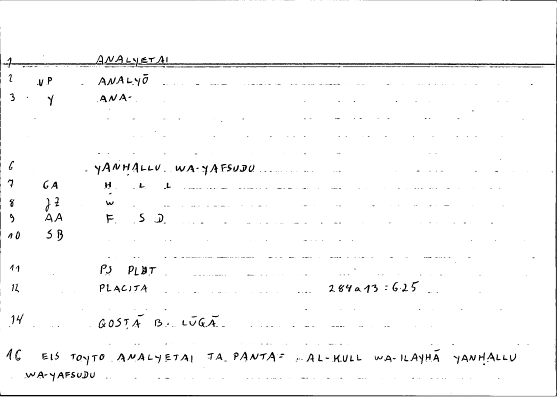 1 ANALYETAI
2 VP ANALYŌ
3 Y ANA-
6 YANḤALLU WA-YAFSUDU
7 GA Ḥ L L
8 JZ W
9 AA F S D
10 SB
11 PS PLBT
12 PLACITA 284a13:6.25
14 GOSṬĀ B. LŪGĀ
16 EIS TOYTO ANALYETAI TA PANTA= AL-KULL WA-ILAYHĀ YANḤALLU
WA-YAFSUDU